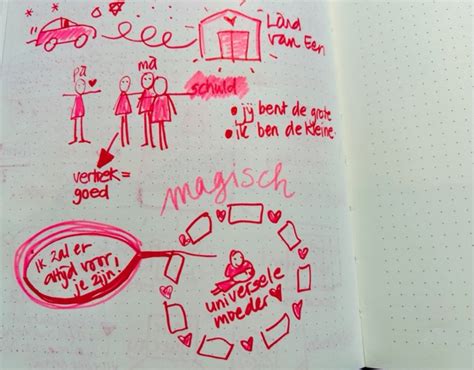 Land
van Een
pa
ma
schuld
• jij bent de grote
• ik ben de kleine.
vertrek =
goed
magisch
ik zal er
altijd voor
je zijn.
universele
moeder